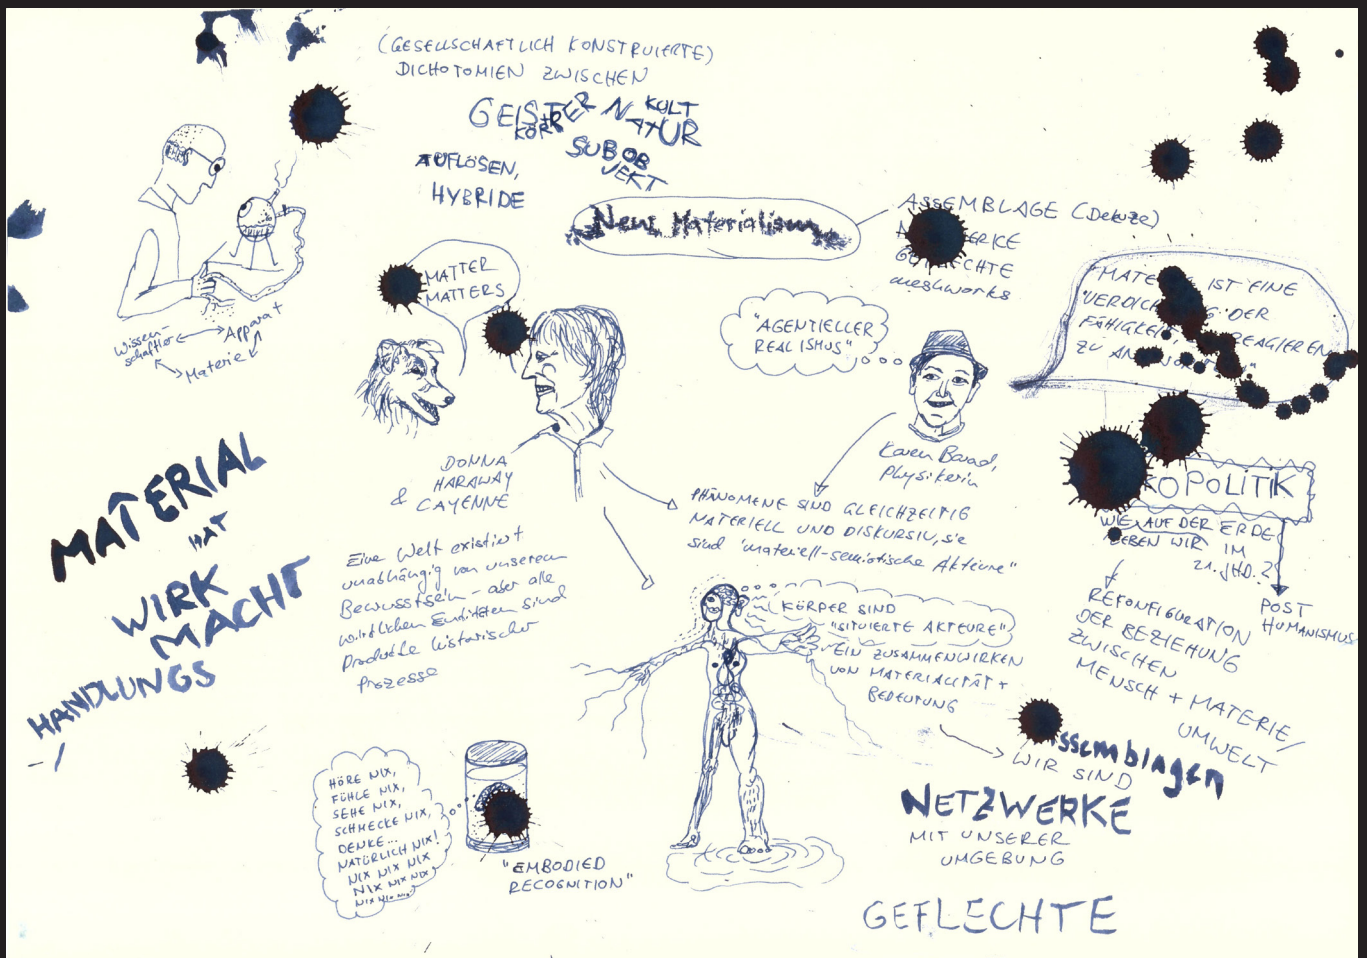 (GESELLSCHAFTLICH KONSTRUIERTE)
DICHOTOMIEN ZWISCHEN
GEIST KÖRPER NATUR KULT
SUBOB
JEKT
AUFLÖSEN,
HYBRIDE
New Materialism
ASSEMBLAGE (Deleuze)
meshworks
MATTER
MATTERS
"AGENTIELLER
REALISMUS"
IST EINE
DER
REAGIEREN
ZU
Wissen-
schaftler
Apparat
Materie
DONNA
HARAWAY
& CAYENNE
Karen Barad,
Physikerin
MATERIAL
HAT
WIRK
MACHT
HANDLUNGS
-/
Eine Welt existiert
unabhängig von unserem
Bewusstsein - aber alle
wirklichen Entitäten sind
Produkte historischer
Prozesse
PHÄNOMENE SIND GLEICHZEITIG
MATERIELL UND DISKURSIV, sie
sind "materiell-semiotische Akteure"
KOPOLITIK
WIE AUF DER ERDE
LEBEN WIR IM
21. JHD.?
POST
HUMANISMUS
REFONFIGURATION
DER BEZIEHUNG
ZWISCHEN
MENSCH + MATERIE/
UMWELT
KÖRPER SIND
"SITUIERTE AKTEURE"
EIN ZUSAMMENWIRKEN
VON MATERIALITÄT +
BEDEUTUNG
WIR SIND
ssemblagen
NETZWERKE
MIT UNSERER
UMGEBUNG
GEFLECHTE
HÖRE NIX,
FÜHLE NIX,
SEHE NIX,
SCHMECKE NIX,
DENKE...
NATÜRLICH NIX!
NIX NIX NIX
NIX NIX NIX
NIX NIX NIX
"EMBODIED
RECOGNITION"